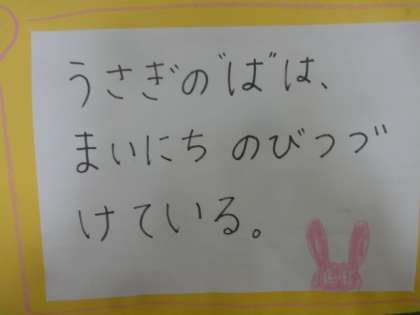 うさぎの"は"は、
まいにち のびつづ
けている。